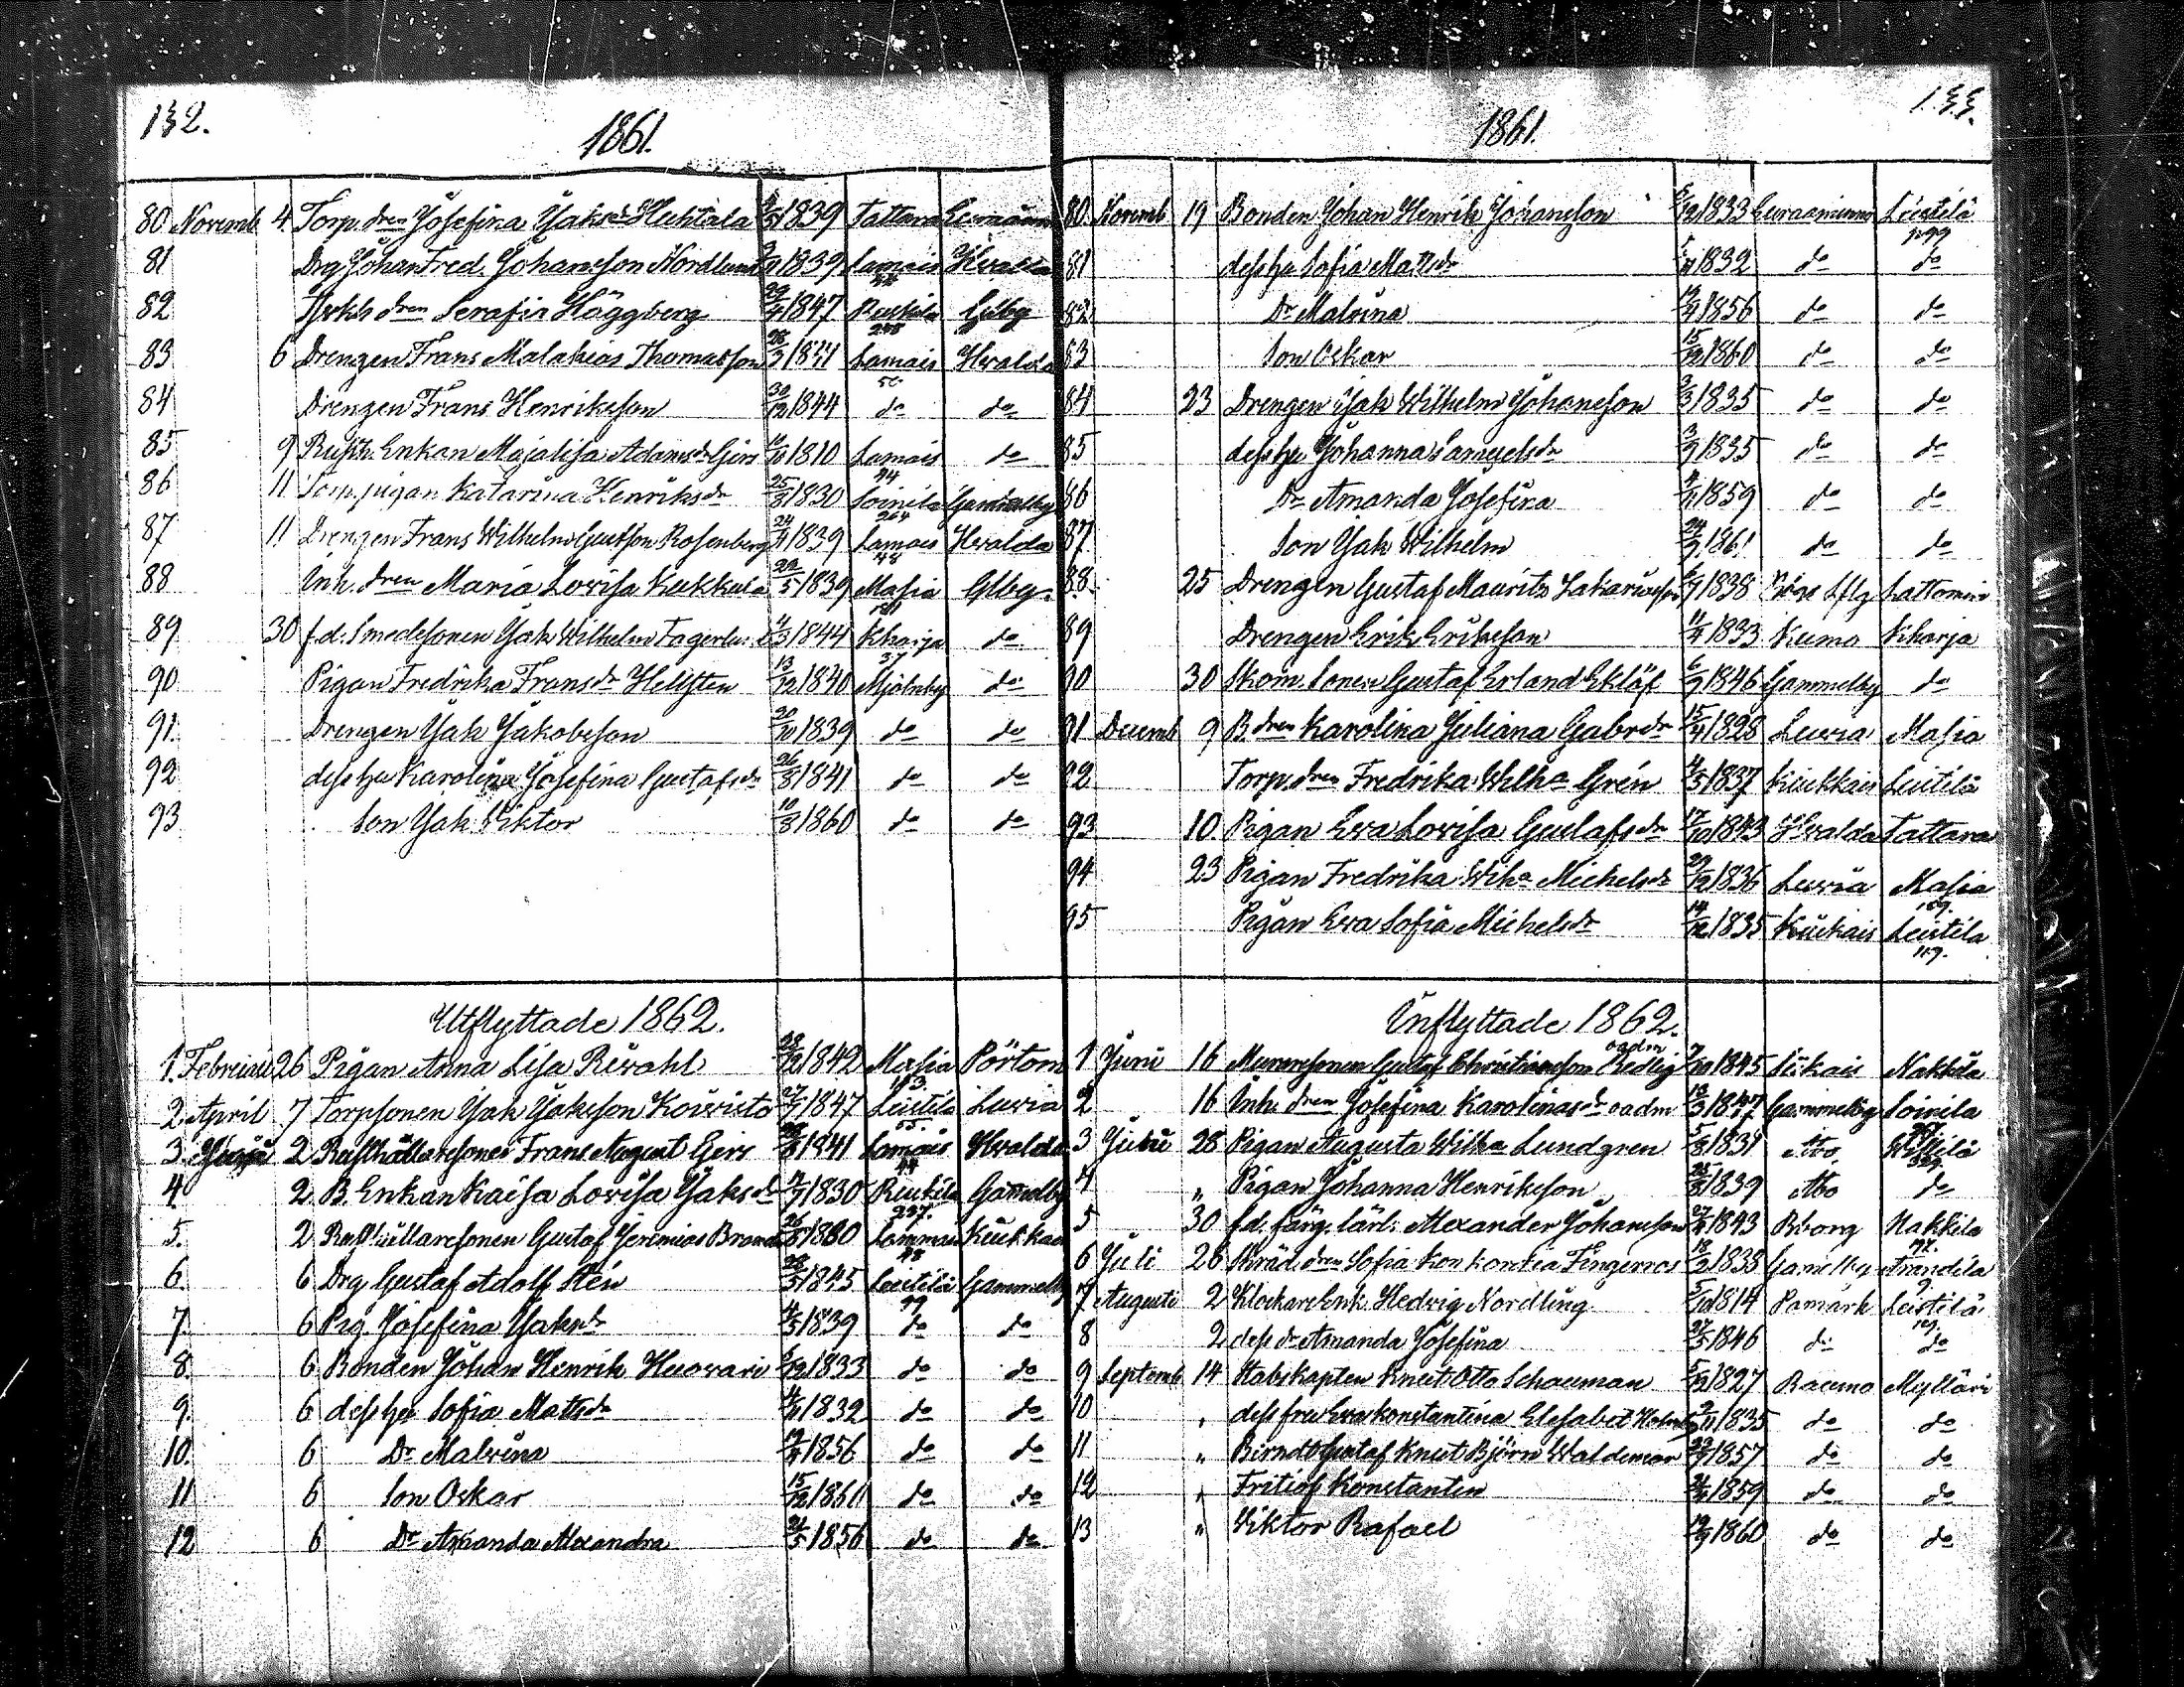 132.
1861.
80 Novemb 4 Torp. dren Josefina Jaksdr Huhtala 4/5 1839 Tattara Euraåmin
81 Drg Johan Fred. Johansson Nordlund 1839 Lamais Hvalda
82 dren Serafia Häggberg 29/4 1847 Ruskila Glby
245
83 6 Drengen Frans Malakias Thomasson 28/3 1841 Lamais Hvalda
50
84 Drengen Frans Henriksson 30/12 1844 do do
85 9 Rusth. Enkan Majalisa Adamsdr Girs 1810 Lamais do
44
86 11 Torp. pigan Katarina Henriksdr 25/8 1830 Soinila Gammelby
264
87 11 Drengen Frans Wilhelm Gustfson Rosenberg 24/4 1839 Lamais Hvalda
48
88 Inh. dren Maria Lovisa Kukkula 22/5 1839 Masia Glby
89 30 f.d. Smedssonen Jak Wilhelm Fagerlu 11/3 1844 Kharja do
37
90 Pigan Fredrika Fransdr Hellsten 13/12 1840 Mjölnby do
91. Drengen Jak Jakobsson 20/10 1839 do do
92 dess hu Karolina Josefina Gustafsdr 26/8 1841 do do
93 Son Jak Viktor 10/8 1860 do do
Utflyttade 1862.
1. Februari 26 Pigan Anna Lisa Rivahl 28/12 1842 Masia Pörtom
113
2. April 7 Torpsonen Jak Jaksson Koivisto 27/7 1847 Leistilä Luvia
55.
3. 2 Rusthållaresonen Frans August Girs 1841 Lamais Hvalda
44
4. 2 B. Enkan Kaisa Lovisa Jaksdr 1830 Ruskila Gamelby
237.
5. 2 Rusthållaresonen Gustaf Jeremias Brand 26/8 1860 Lammais Kiukkais
48
6. 6 Drg Gustaf Adolf Stén 28/5 1845 Leistilä Gammelby
99
7. 6 Pig. Josefina Jaksdr 4/5 1839 do do
8. 6 Bonden Johan Henrik Huovari 6/12 1833 do do
9. 6 dess hu Sofia Mattsdr 1832 do do
10. 6 Dr Malvina 19/4 1856 do do
11 6 Son Oskar 15/12 1860 do do
12 6 Dr Amanda Alexandra 21/5 1856 do do
133.
1861.
80. Novemb 19 Bonden Johan Henrik Johansson 6/12 1833 Euraaminne Leistilä
p. 99
81 dess hu Sofia Mattsdr 1832 do do
82 Dr Malvina 19/4 1856 do do
83 Son Oskar 15/12 1860 do do
84 23 Drengen Jak Wilhelm Johansson 2/3 1835 do do
85 dess hu Johanna Samuelsdr 3/9 1835 do do
86 Dr Amanda Josefina 1859 do do
87 Son Jak Wilhelm 24/9 1861 do do
88. 25 Drengen Gustaf Maurits Sakariasson 1838
89 Drengen Erik Eriksson 11/4 1833 Kumo Kharja
90 30 Skom. Sonen Gustaf Erland Eklöf 6/9 1846 Gammelby do
91 Decemb 9 B. dren Karolina Juliana Gabrdr 15/4 1828 Luvia Masia
92 Torp. dren Fredrika Wilha Grén 4/3 1837 Kiukkais Leistilä
93 10. Pigan Eva Lovisa Gustafsdr 17/10 1843 Hvalda Tattara
94 23 Pigan Fredrika Wiha Michelsdr 29/12 1836 Luvia Masia
95 Pigan Eva Sofia Michelsdr 14/12 1835 Kiukais Leistila
119.
Inflyttade 1862.
oadm
1 Juni 16 Muraresonen Gustaf Christiansson Redlig 7/10 1845 Siikais Nakkila
2 16 Inh. dren Josefina Karolinasdr oadm 13/3 1847 Gammelby Soinila
267
3 28 Pigan Augusta Wilha Lundgren 5/8 1831 Åbo Willilä
4 „ Pigan Johanna Henriksson 25/8 1839 Åbo do
5 30 f.d. färg. lärl. Alexander Johansson 27/4 1843 Bborg Nakkila
92.
6 Juli 26 Skräd. dren Sofia Konkordia Fingerroos 18/2 1838 Gamelby Arandila
9
7 Augusti 2 Klockare Enk. Hedvig Nordling 5/10 1814 Pamark Leistilä
8 2 dess dr Amanda Josefina 27/5 1846 do do
9 Septemb 14 Stabskapten Knut Otto Schauman 5/12 1827 Raumo Mylläri
10 „ dess fru Eva Konstantina Elisabet 2/11 1835 do do
11 „ Berndt Gustaf Knut Björn Waldemar 23/9 1857 do do
12 „ Fritiof Konstantin 1859 do do
13 „ Viktor Rafael 19/9 1860 do do